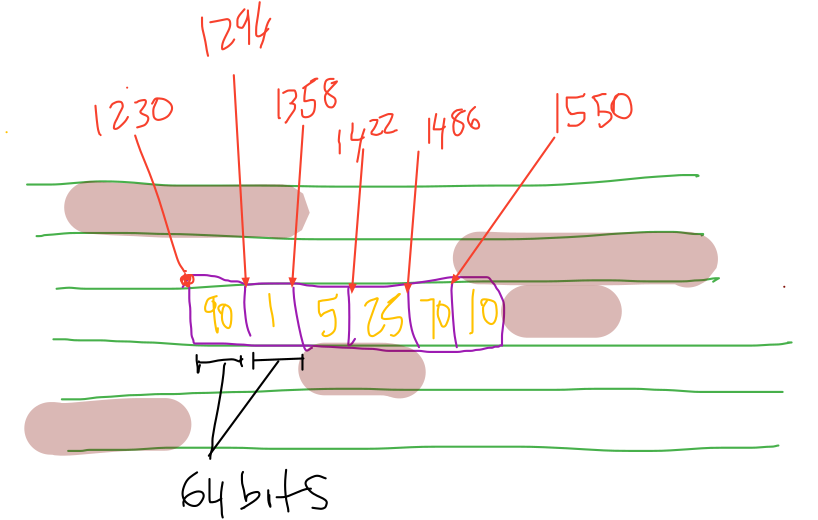 1294
1230
1358
1422
1486
1550
90 1 5 25 70 10
64 bits